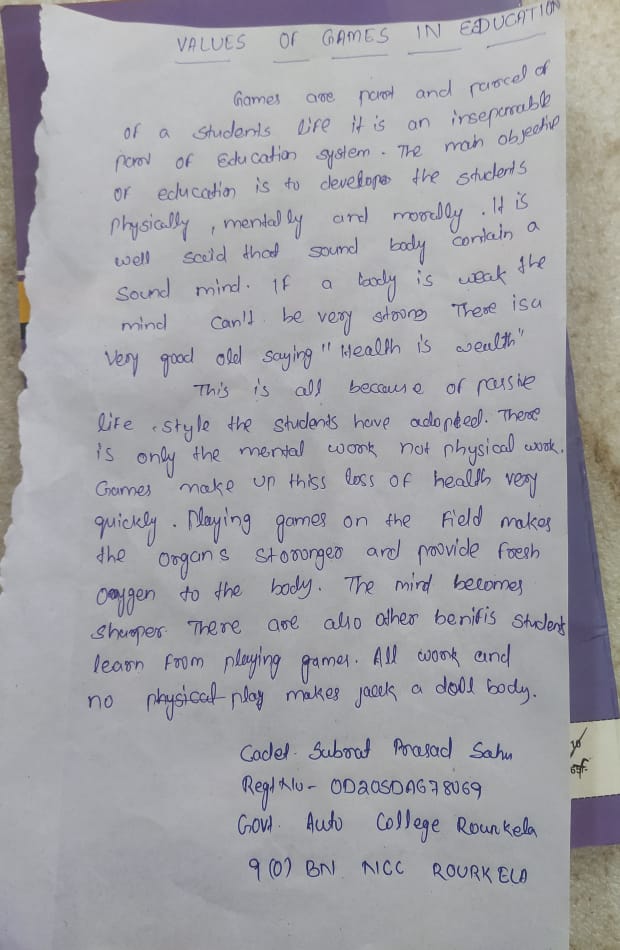 VALUES OF GAMES IN EDUCATION
Games are part and parcel of
of a students life it is an inseparable
part of Education system. The main objective
of education is to develope the students
Physically, mentally and morally. It is
well said that sound body contain a
Sound mind. If a body is weak the
mind can't be very strong There is a
Very good old saying "Health is wealth"
This is all because of passive
life style the students have adopted. There
is only the mental work not physical work.
Games make up thiss loss of health very
quickly. Playing games on the field makes
the organs stronger and provide fresh
oxygen to the body. The mind becomes
sharper. There are also other benifis student
learn from playing games. All work and
no physical play makes jack a doll body.
Cadet. Subrat Prasad Sahu
Regt No- OD20SDA678069
Govt. Auto College Rourkela
9 (O) BN NCC ROURKELA